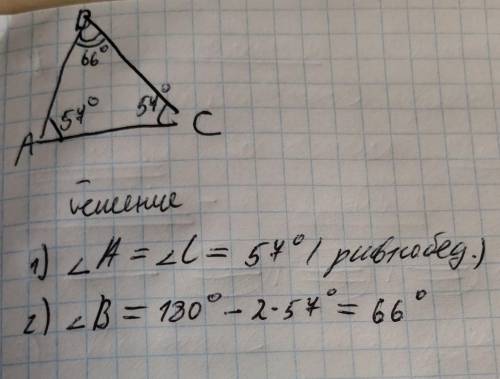 B
66°
57°
57°
A
C
решение
1) ∠A = ∠C = 57° (равнобед.)
2) ∠B = 180° - 2·57° = 66°